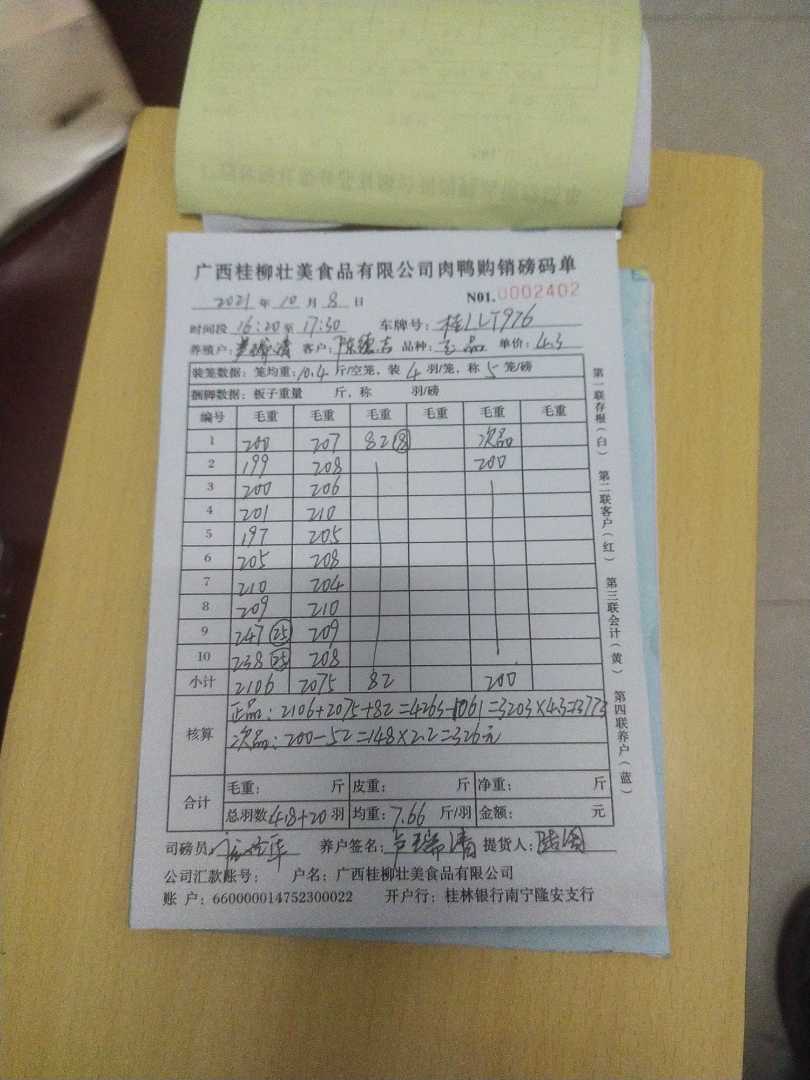 广西桂柳壮美食品有限公司肉鸭购销磅码单
2021年10月8日 N01.0002402
时间段16:20至17:30 车牌号:桂LLT976
养殖户: 清 客户:陈德吉 品种: 品 单价:4.3
装笼数据:笼均重:10.4斤/空笼,装4羽/笼,称5笼/磅
捆脚数据:板子重量 斤,称 羽/磅
编号 毛重 毛重 毛重 毛重 毛重 毛重
1 200 207 82⑧ 次品
2 199 208 200
3 200 206
4 201 210
5 197 205
6 205 208
7 210 204
8 209 210
9 247㉕ 209
10 238㉕ 208
小计 2106 2075 82 200
核算 正品:2106+2075+82=4263-1061=3203×4.3=13773
次品:200-52=148×2.2=326元
合计 毛重: 斤 皮重: 斤 净重: 斤
总羽数:418+20羽 均重:7.66斤/羽 金额: 元
司磅员: 华 养户签名:卢瑞清 提货人:
公司汇款账号: 户名:广西桂柳壮美食品有限公司
账 户:660000014752300022 开户行:桂林银行南宁隆安支行
第一联存根(白) 第二联客户(红) 第三联会计(黄) 第四联养户(蓝)